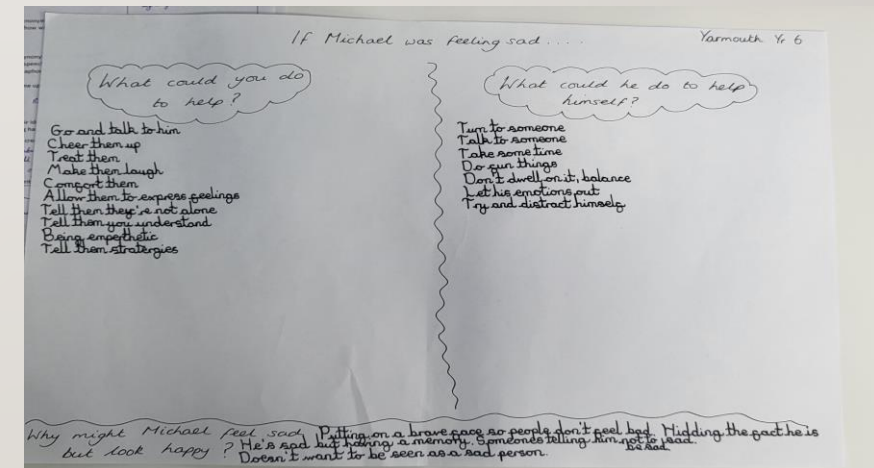 If Michael was feeling sad....
Yarmouth Yr 6
What could you do
to help?
Go and talk to him
Cheer them up
Treat them
Make them laugh
Comfort them
Allow them to express feelings
Tell them they're not alone
Tell them you understand
Being emperthetic
Tell them stratergies
What could he do to help
himself?
Turn to someone
Talk to someone
Take some time
Do fun things
Don't dwell on it, balance
Let his emotions out
Try and distract himself
Why might Michael feel sad
but look happy?
Putting on a brave face so people don't feel bad. Hidding the fact he is
He's sad but having a memory. Someones telling him not to sad.
be sad
Doesn't want to be seen as a sad person.